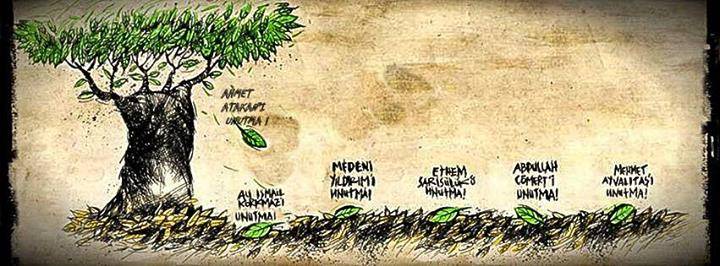 AHMET
ATAKAN'I
UNUTMA!
ALI ISMAIL
KORKMAZ'I
UNUTMA!
MEDENI
YILDIRIM'I
UNUTMA!
ETHEM
SARISÜLÜK'Ü
UNUTMA!
ABDULLAH
CÖMERT'I
UNUTMA!
MEHMET
AYVALITAŞ'I
UNUTMA!